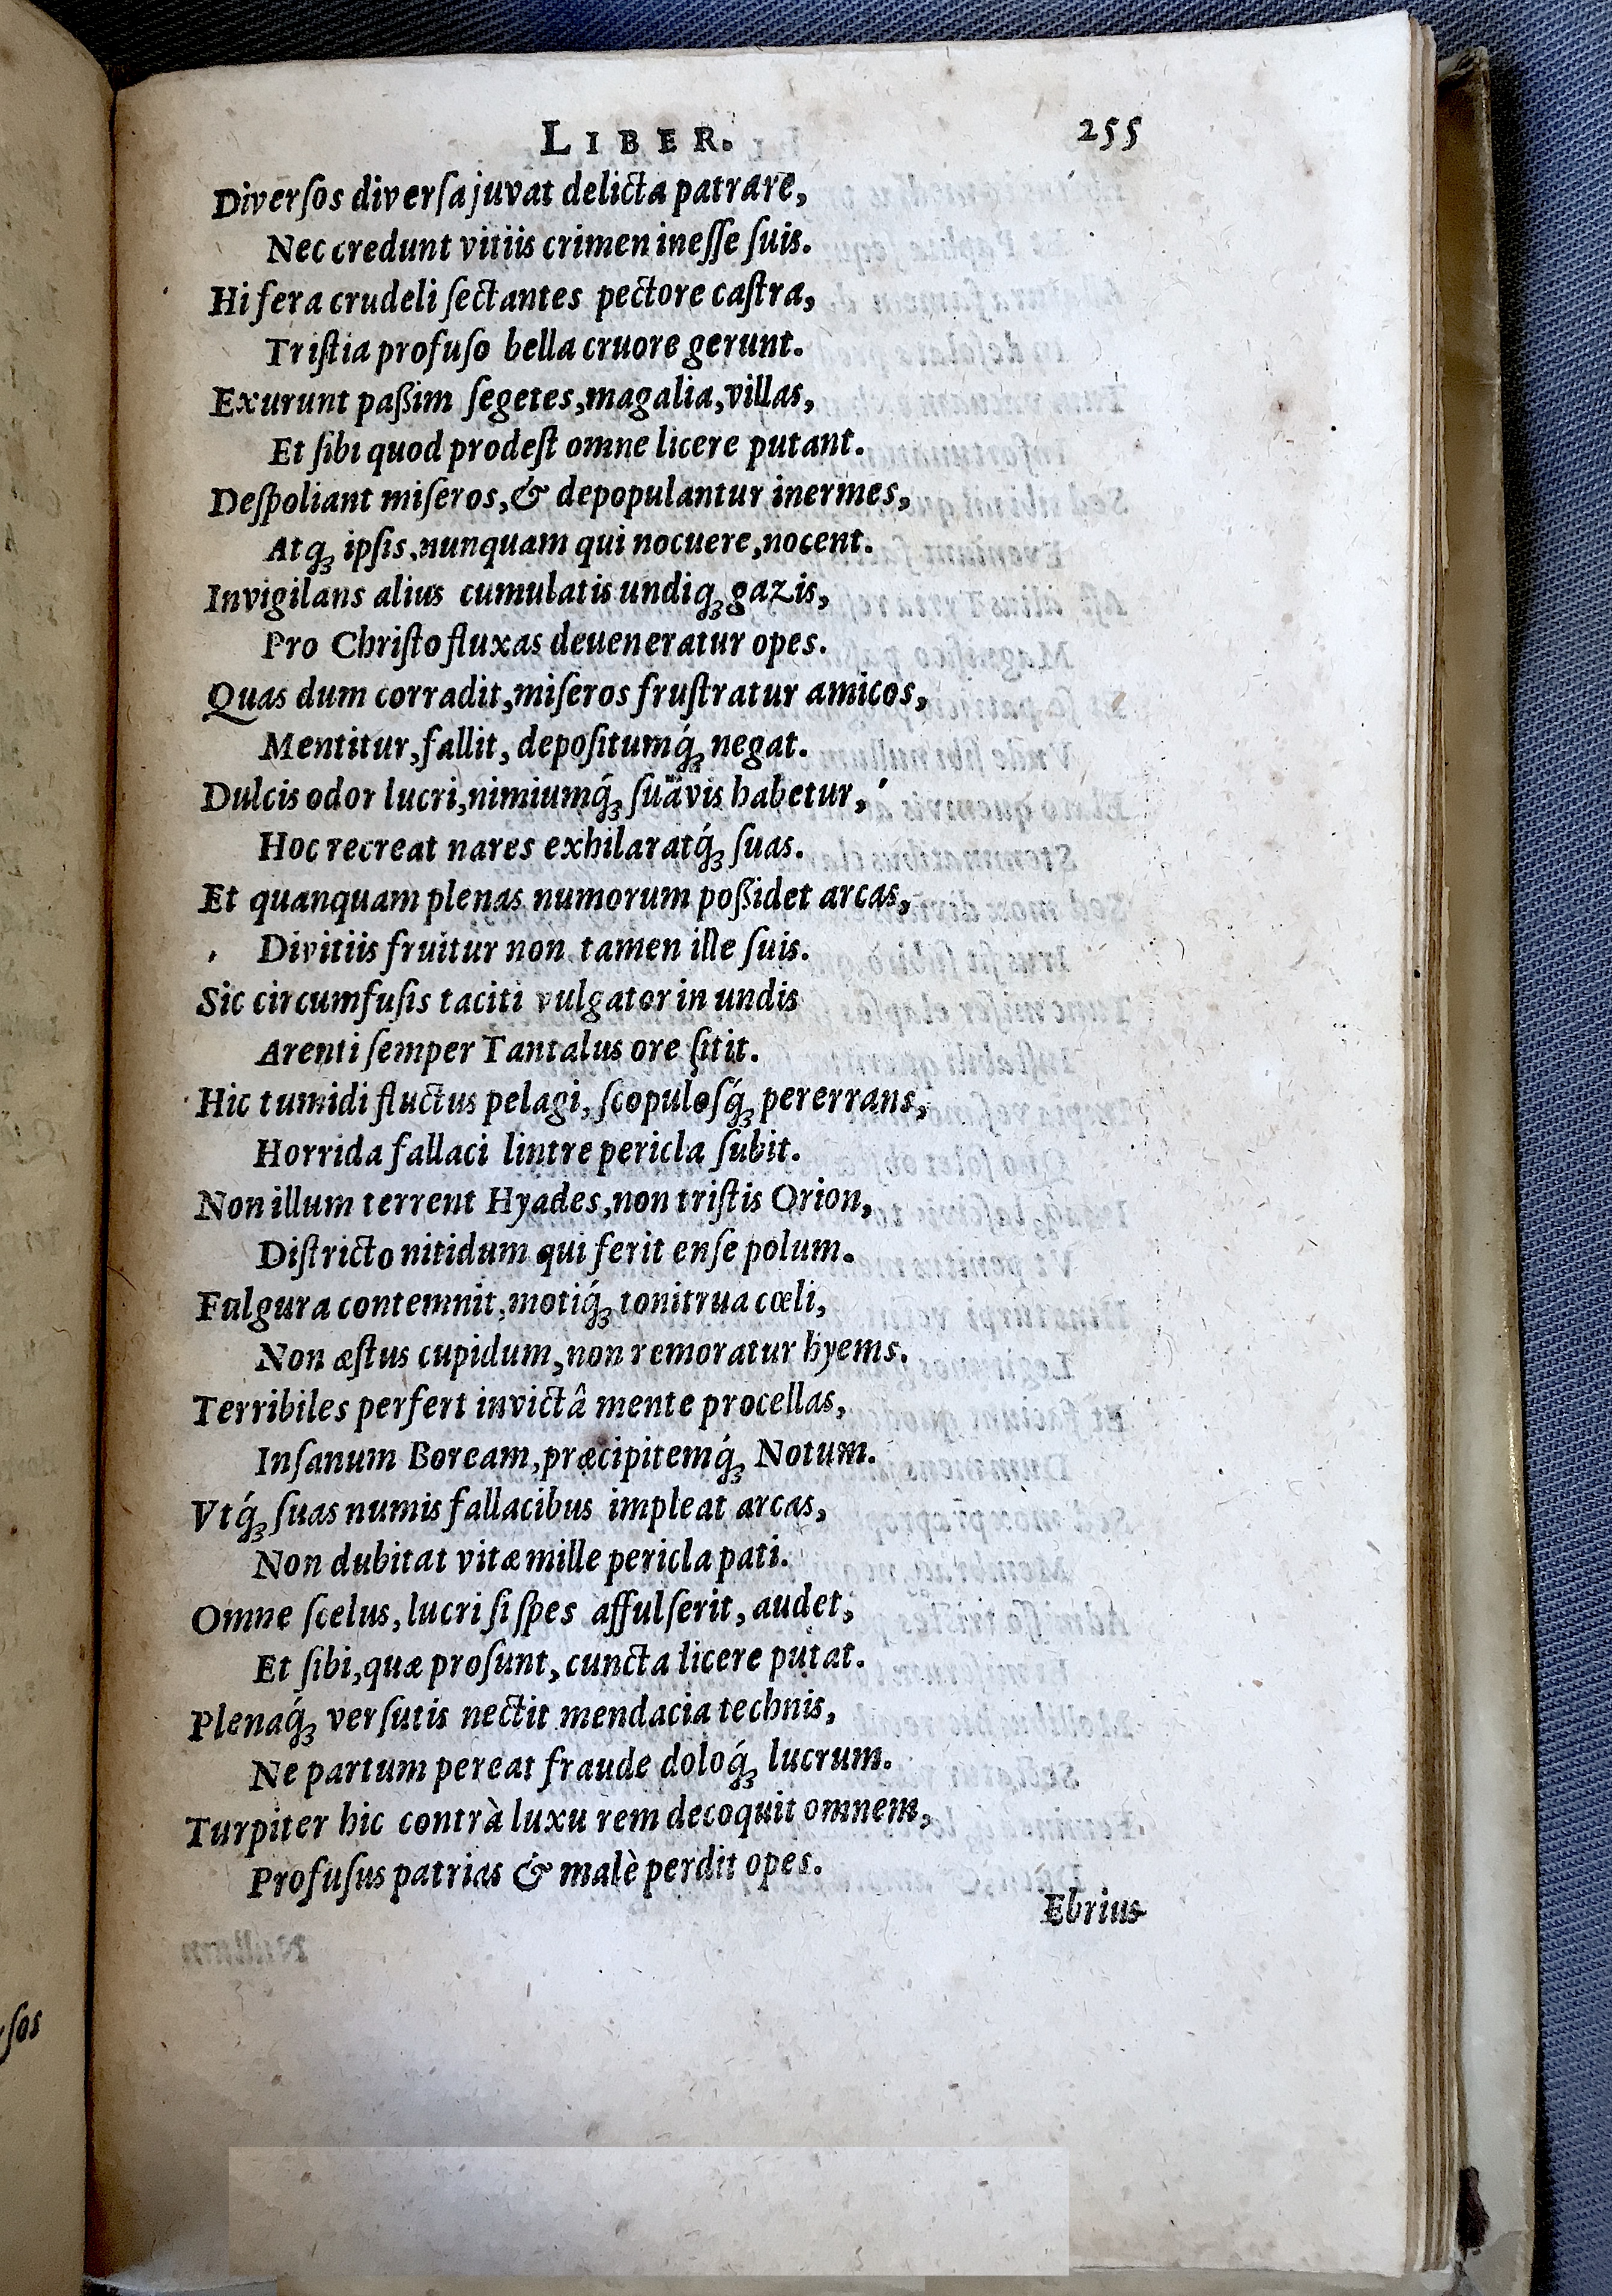 LIBER. 255
Diverſos diverſa juvat delicta patrare,
Nec credunt vitiis crimen ineſſe ſuis.
Hi fera crudeli ſectantes pectore caſtra,
Triſtia profuſo bella cruore gerunt.
Exurunt paßim ſegetes, magalia, villas,
Et ſibi quod prodeſt omne licere putant.
Deſpoliant miſeros, & depopulantur inermes,
Atqꝫ ipſis, nunquam qui nocuere, nocent.
Invigilans alius cumulatis undiqꝫ gazis,
Pro Chriſto fluxas deueneratur opes.
Quas dum corradit, miſeros fruſtratur amicos,
Mentitur, fallit, depoſitumq́ꝫ negat.
Dulcis odor lucri, nimiumq́ꝫ ſuävis habetur,
Hoc recreat nares exhilaratq́ꝫ ſuas.
Et quanquam plenas numorum poßidet arcas,
Divitiis fruitur non tamen ille ſuis.
Sic circumfuſis taciti vulgator in undis
Arenti ſemper Tantalus ore ſitit.
Hic tumidi fluctus pelagi, ſcopuloſq́ꝫ pererrans,
Horrida fallaci lintre pericla ſubit.
Non illum terrent Hyades, non triſtis Orion,
Diſtricto nitidum qui ferit enſe polum.
Fulgura contemnit, motiq́ꝫ tonitrua cœli,
Non æſtus cupidum, non remoratur hyems.
Terribiles perfert invictâ mente procellas,
Inſanum Boream, præcipitemq́ꝫ Notum.
Vtq́ꝫ ſuas numis fallacibus impleat arcas,
Non dubitat vitæ mille pericla pati.
Omne ſcelus, lucri ſi ſpes affulſerit, audet,
Et ſibi, quæ proſunt, cuncta licere putat.
Plenaq́ꝫ verſutis nectit mendacia technis,
Ne partum pereat fraude doloq́ꝫ lucrum.
Turpiter hic contrà luxu rem decoquit omnem,
Profuſus patrias & malè perdit opes.
Ebrius